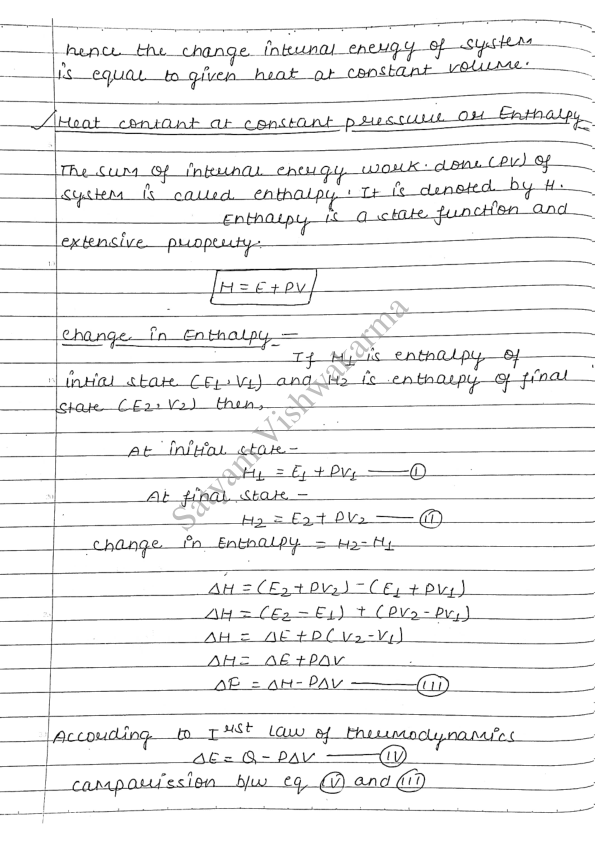 hence the change internal energy of system
is equal to given heat at constant volume.
Heat contant at constant pressure or Enthalpy
The sum of internal energy work done (PV) of
system is called enthalpy. It is denoted by H.
Enthalpy is a state function and
extensive property.
H = E + PV
change in Enthalpy -
If H1 is enthalpy of
intial state (E1, V1) and H2 is enthalpy of final
state (E2, V2) then,
At initial state -
H1 = E1 + PV1 —— (I)
At final state -
H2 = E2 + PV2 —— (II)
change in Enthalpy = H2-H1
ΔH = (E2 + PV2) - (E1 + PV1)
ΔH = (E2 - E1) + (PV2 - PV1)
ΔH = ΔE + P(V2 - V1)
ΔH = ΔE + PΔV
ΔE = ΔH - PΔV —— (III)
According to Irst law of thermodynamics
ΔE = Q - PΔV —— (IV)
camparission b/w eq (IV) and (III)
Satyam Vishwakarma